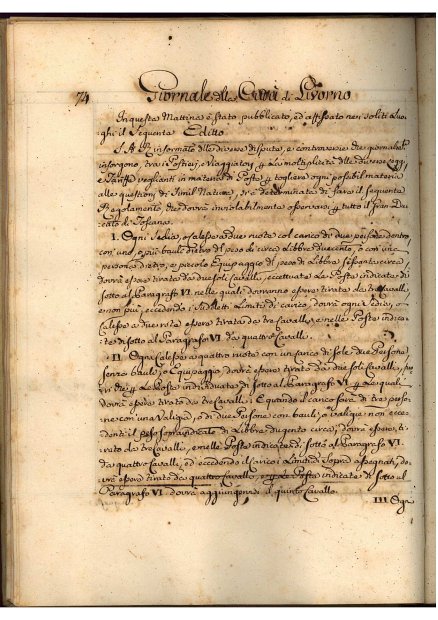 74 Giornale della Città di Livorno
In questa Mattina è stato pubblicato, ed affissato nei soliti Luo-
ghi il seguente Editto
S. A. R. informato delle diverse dispute, e controversie che giornalmente
insorgono, tra i Postieri, e Viaggiatori per la moltiplicità delle diverse Leggi,
e Tariffe veglianti in materia di Poste per togliere ogni possibil materia
alle questioni di simil Natura, si è determinata di fare il seguente
Regolamento, che dovrà inviolabilmente osservarsi per tutto il Gran Du-
cato di Toscana.
I. Ogni Sedia, o Calesse a due ruote col carico di due persone dentro,
con uno, o più bauli dietro del peso di circa Libbre duecento, o con una
persona dietro, e piccolo Equipaggio del peso di Libbre sessanta circa,
dovrà essere tirata da due soli Cavalli, eccettuate le Poste indicate di
sotto al Paragrafo VI. nelle quali dovranno essere tirate da tre Cavalli,
e non più, eccedendo i suddetti Limiti di carico, dovrà ogni sedia, o
Calesse a due ruote essere tirata da tre Cavalli, e nelle Poste indica-
te di sotto al Paragrafo VI da quattro Cavalli.
II. Ogni Calesse a quattro ruote con un carico di sole due Persone
senza bauli, o Equipaggio dovrà essere tirato da due soli Cavalli,
per le Poste individuate di sotto al Paragrafo VI per le quali
dovrà essere tirato da tre Cavalli. E quando il carico sarà di tre perso-
ne con una Valigia, o di due Persone con bauli, o valigia non ecce-
denti il peso sopra ideale di Libbre dugento circa, dovrà essere ti-
rato da tre Cavalli, e nelle Poste indicate di sotto al Paragrafo VI.
da quattro Cavalli, ed eccedendo il carico i Limiti di sopra assegnati, do-
vrà essere tirato da quattro Cavalli, e per le Poste indicate di sotto al
Paragrafo VI dovrà aggiungersi il quinto Cavallo.
III Ogni